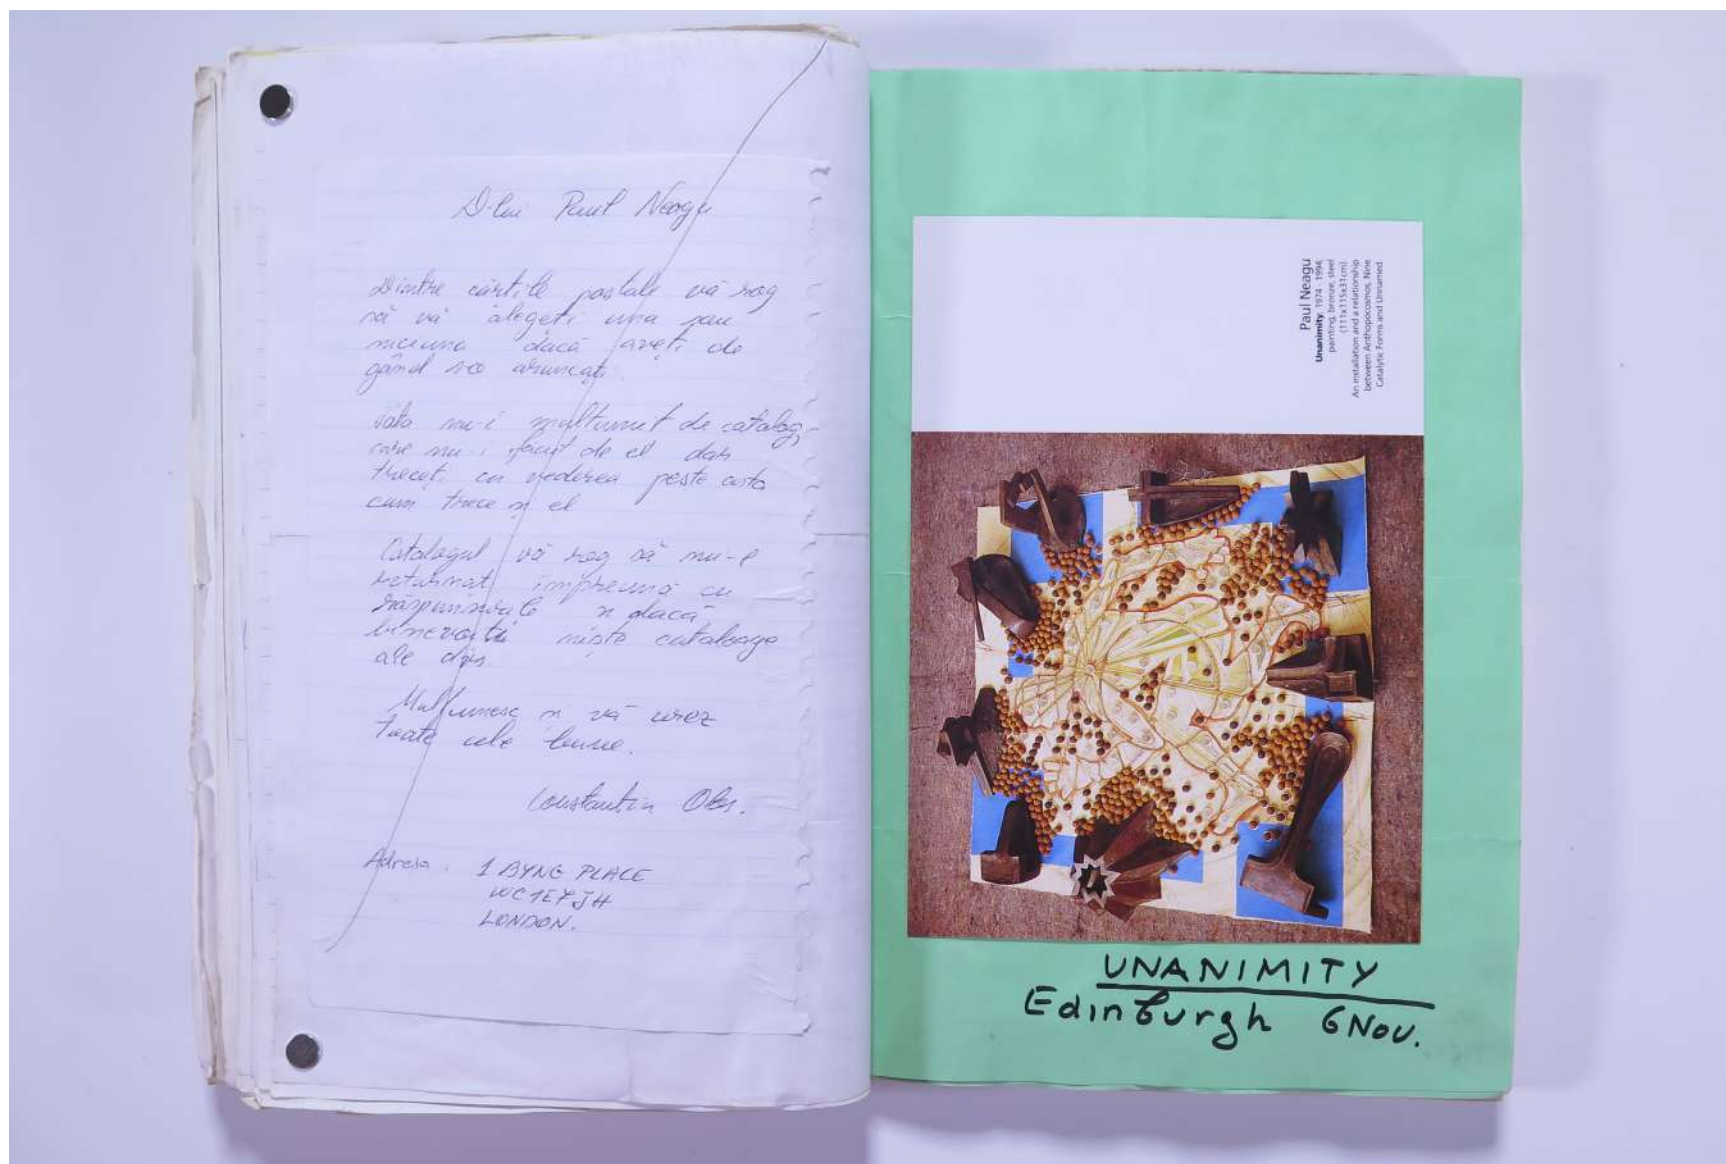 D-lui Paul Neagu
Dintre cărtile postale vă rog
să vă alegeti una sau
niciuna dacă aveți de
gând s-o aruncați.
Tata nu-i multumit de catalog,
care nu-i făcut de el dar
treceti cu vederea peste asta
cum trece și el
Catalogul vă rog să mi-l
returnati împreună cu
și dacă
niște cataloage
ale dvs.
Mulțumesc și vă urez
toate cele bune.
Constantin
Adresa: 1 BYNG PLACE
WC1E7JH
LONDON.
Paul Neagu
Unanimity, 1974 - 1994,
painting, bronze, steel
(111x115x31cm).
An installation and a relationship
between Anthopocosmos, Nine
Catalytic Forms and Unnamed.
UNANIMITY
Edinburgh 6 Nov.